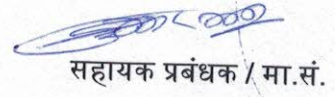 सहायक प्रबंधक / मा.सं.